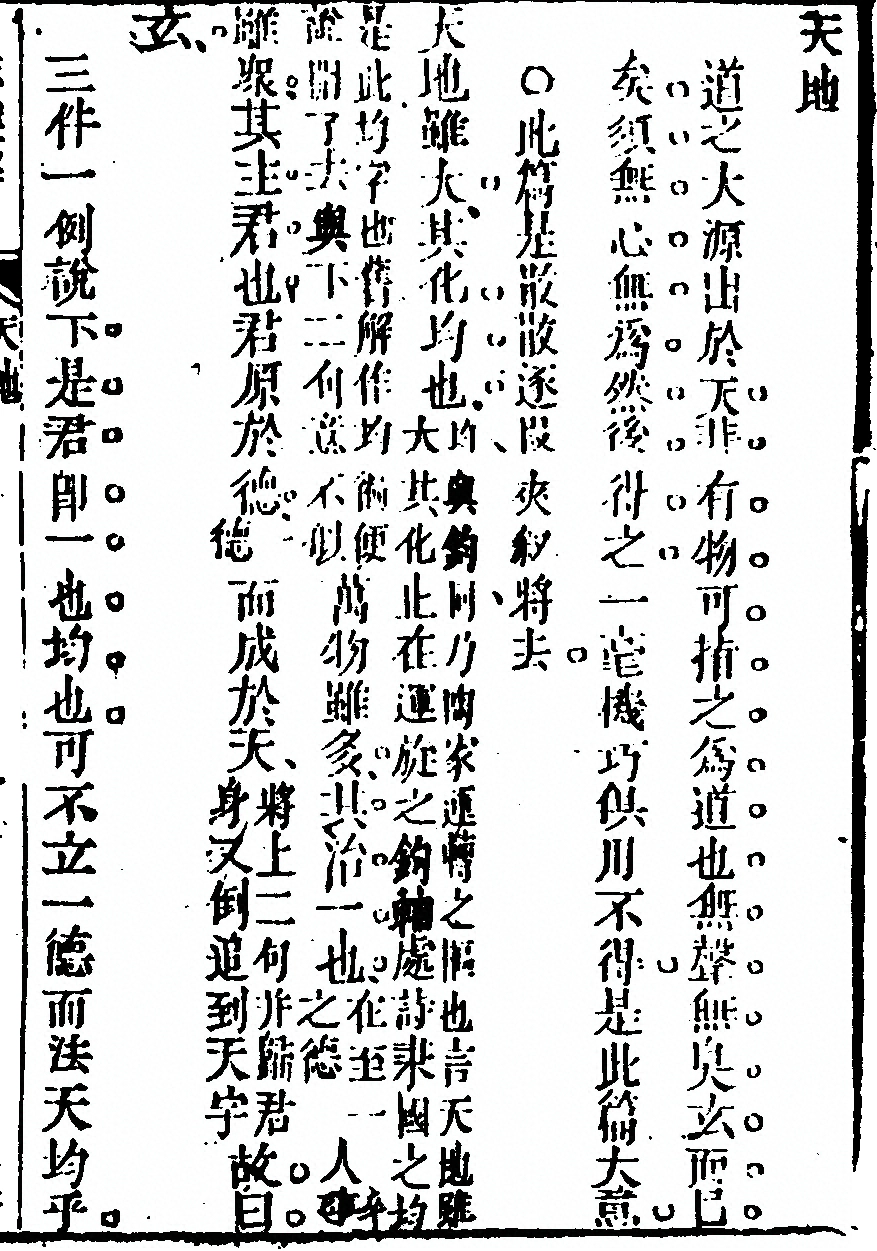 天地
道之大源出於天非有物可指之為道也無聲無臭玄而已
矣須無心無為然後得之一毫機巧俱用不得是此篇大意
○此篇是散散逐段夾敘將去
天地雖大其化均也均與鈞同乃陶家運轉之樞也言天地雖大其化止在運旋之鈞軸處詩秉國之均
是此均字也舊解作均徧便說開了去與下二句意不似萬物雖多其治一也在至一之德人卒
雖眾其主君也君原於德一德而成於天將上二句并歸君身又倒追到天字故曰
玄
三件一例說下是君即一也均也可不立一德而法天均乎
天地